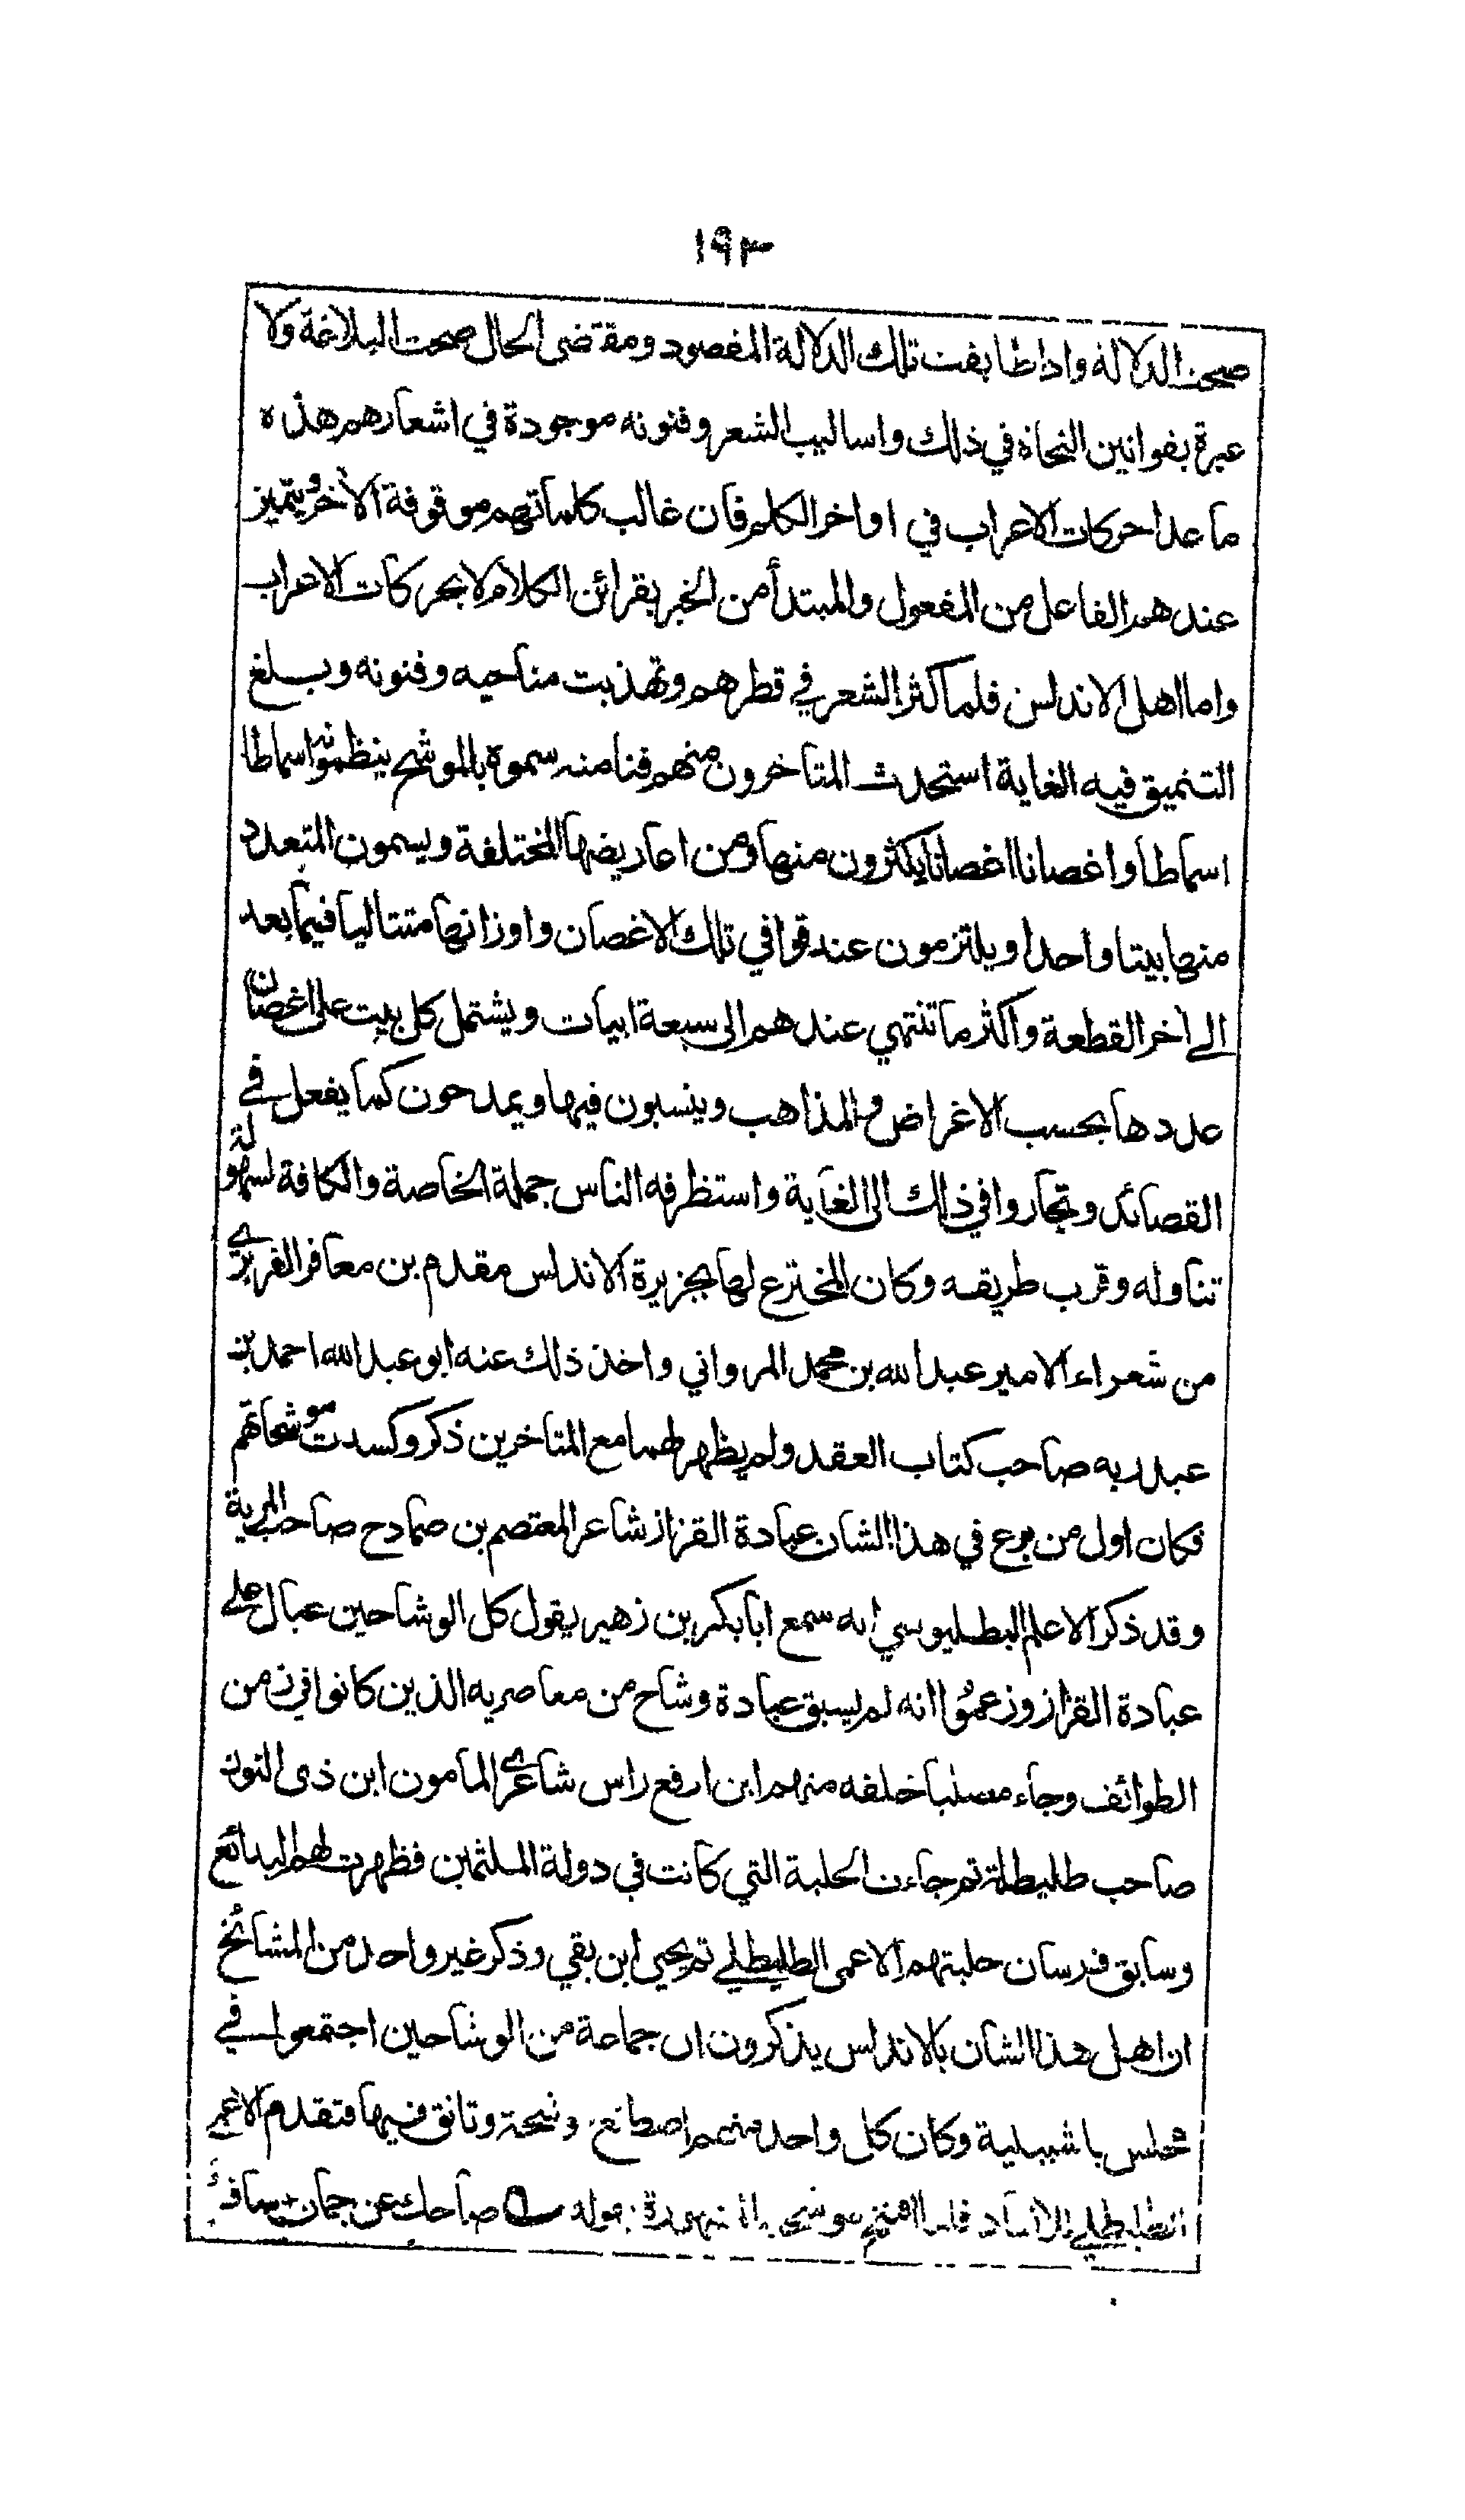 ١٩٣
صحت الدلالة واذا طابقت تلك الدلالة المقصود ومقتضى الحال صحت البلاغة ولا
عبرة بقوانين النحاة في ذلك واساليب الشعر وفنونه موجودة في اشعارهم هذه
ما عدا حركات الاعراب في اواخر الكلم فان غالب كلماتهم موقوفة الآخر ويتميز
عندهم الفاعل من المفعول والمبتدأ من الخبر بقرائن الكلام لا بحركات الاعراب
واما اهل الاندلس فلما كثر الشعر في قطرهم وتهذبت مناحيه وفنونه وبلغ
التنميق فيه الغاية استحدث المتاخرون منهم فنا منه سموه بالموشح ينظمونه اسماطا
اسماطا واغصانا اغصانا يكثرون منها ومن اعاريضها المختلفة ويسمون المتعدد
منها بيتا واحدا ويلتزمون عند قوافي تلك الاغصان واوزانها متتاليا فيما بعد
الى اخر القطعة واكثر ما تنتهي عندهم الى سبعة ابيات ويشتمل كل بيت على اغصان
عددها بحسب الاغراض والمذاهب وينسبون فيها ويمدحون كما يفعل في
القصائد وتجاروا في ذلك الى الغاية واستظرفه الناس جملة الخاصة والكافة لسهولة
تناوله وقرب طريقه وكان المخترع لها بجزيرة الاندلس مقدم بن معافر الفريري
من شعراء الامير عبد الله بن محمد المرواني واخذ ذلك عنه ابو عبد الله احمد بن
عبد ربه صاحب كتاب العقد ولم يظهر لهما مع المتاخرين ذكر وكسدت موشحاتهم
فكان اول من برع في هذا الشان عبادة القزاز شاعر المعتصم بن صمادح صاحب المرية
وقد ذكر الاعلم البطليوسي انه سمع ابا بكر بن زهير يقول كل الوشاحين عيال على
عبادة القزاز وزعموا انه لم يسبق عبادة وشاح من معاصريه الذين كانوا في زمن
الطوائف وجاء مصليا خلفه منهم ابن ارفع راس شاعر المامون ابن ذى النون
صاحب طليطلة ثم جاءت الحلبة التي كانت في دولة الملثمين فظهرت لهم البدائع
وسابق فرسان حلبتهم الاعمى الطليطلي ثم يحيى ابن بقي وذكر غير واحد من المشائخ
ان اهل هذا الشان بالاندلس يذكرون ان جماعة من الوشاحين اجتمعوا في
مجلس باشبيلية وكان كل واحد منهم اصطنع موشحة وتانق فيها فتقدم الاعمى
الطليطلي للانشاد فلما افتتح موشحته المشهورة بقوله ضاحك عن جمان سافر